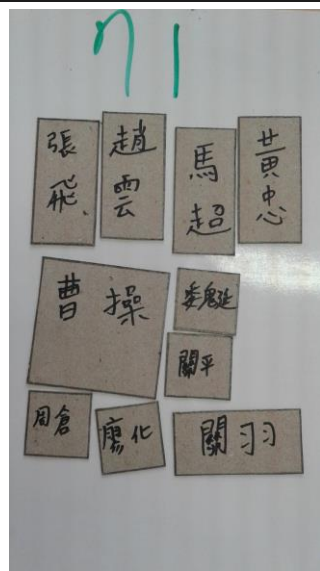 71
張飛
趙雲
馬超
黃忠
曹操
魏延
關平
周倉
廖化
關羽